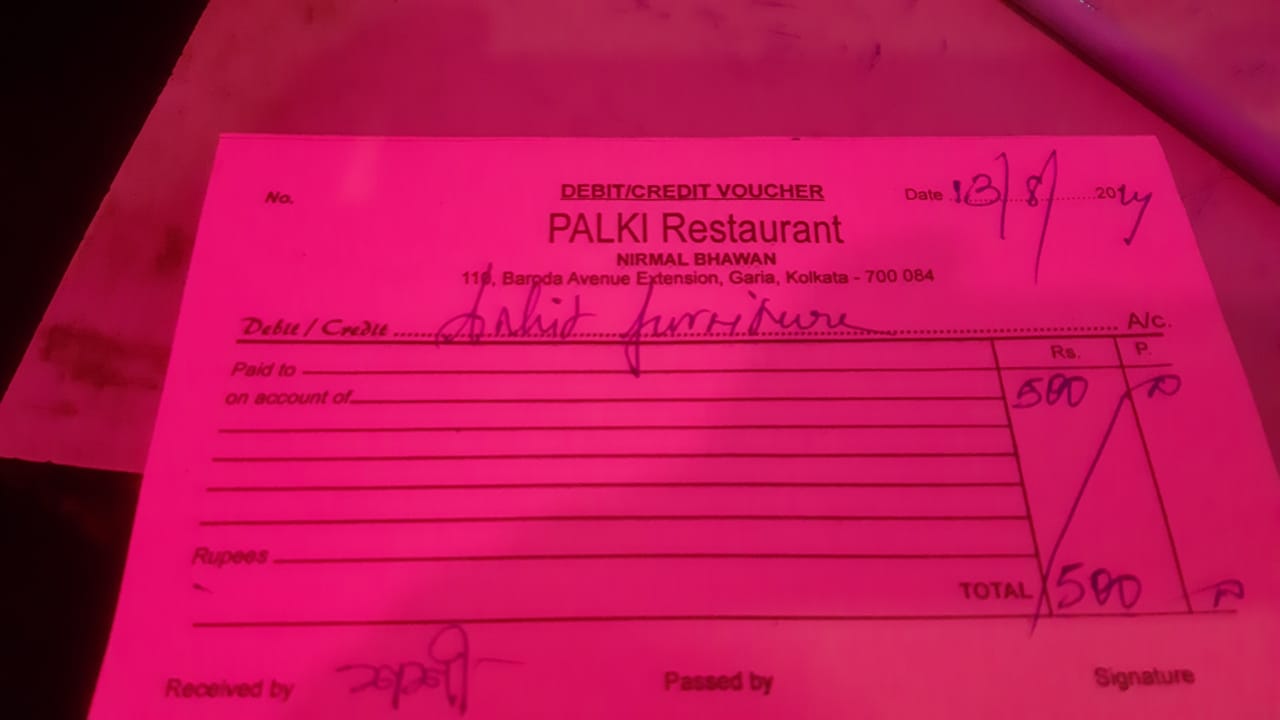 No.
DEBIT/CREDIT VOUCHER
Date 13/8/2024
PALKI Restaurant
NIRMAL BHAWAN
110, Baroda Avenue Extension, Garia, Kolkata - 700 084
Debit / Credit Ankit furniture A/c.
Rs. P.
Paid to
on account of 500
Rupees
TOTAL 500
Received by
Passed by
Signature